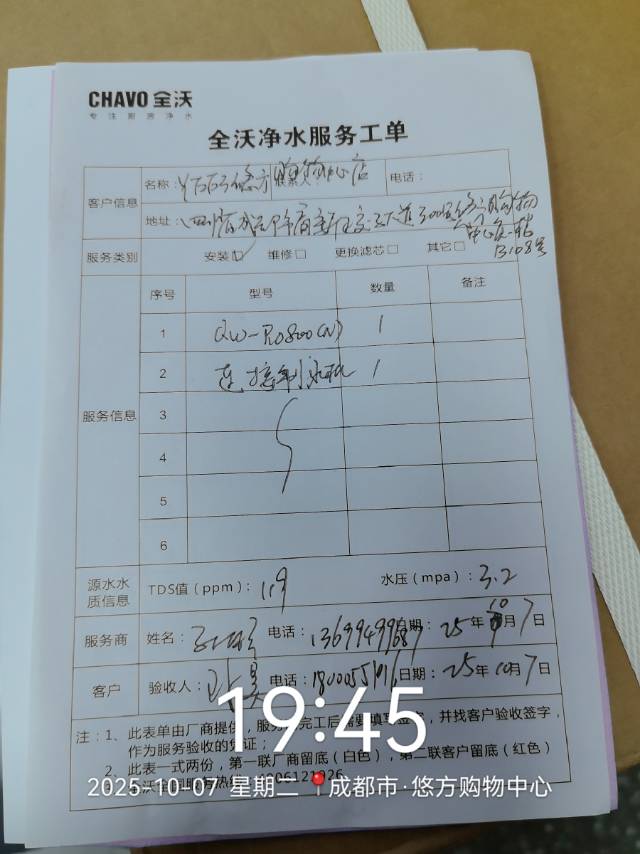 CHAVO 全沃
专注厨房净水
全沃净水服务工单
客户信息
名称: 悠方购物中心店 联系人: 电话:
地址: 购物
B108号
服务类别 安装☑ 维修□ 更换滤芯□ 其它□
服务信息
序号 型号 数量 备注
1 QW-RO800(N) 1
2 连接制冰机 1
3
4
5
6
源水水质信息 TDS值(ppm): 119 水压(mpa): 3.2
服务商 姓名: 电话: 日期: 25年10月7日
客户 验收人: 电话: 日期: 25年10月7日
19:45
注: 1、此表单由厂商提供, 服务完工后需要填写签字, 并找客户验收签字,
作为服务验收的凭证;
2、此表一式两份, 第一联厂商留底(白色), 第二联客户留底(红色)
2025-10-07 星期二 成都市·悠方购物中心